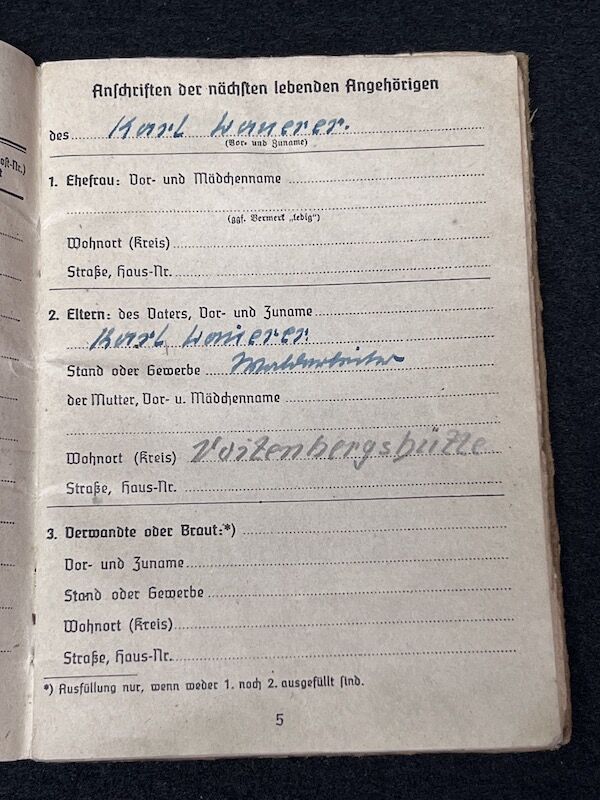 oſt-Nr.)
Anſchriften der nächſten lebenden Angehörigen
des Karl Wanerer.
(Vor- und Zuname)
1. Ehefrau: Vor- und Mädchenname
(ggf. Vermerk „ledig“)
Wohnort (Kreis)
Straße, Haus-Nr.
2. Eltern: des Vaters, Vor- und Zuname
Karl
Stand oder Gewerbe Waldarbeiter
der Mutter, Vor- u. Mädchenname
Wohnort (Kreis) Voitenbergshütte
Straße, Haus-Nr.
3. Verwandte oder Braut:*)
Vor- und Zuname
Stand oder Gewerbe
Wohnort (Kreis)
Straße, Haus-Nr.
*) Ausfüllung nur, wenn weder 1. noch 2. ausgefüllt ſind.
5